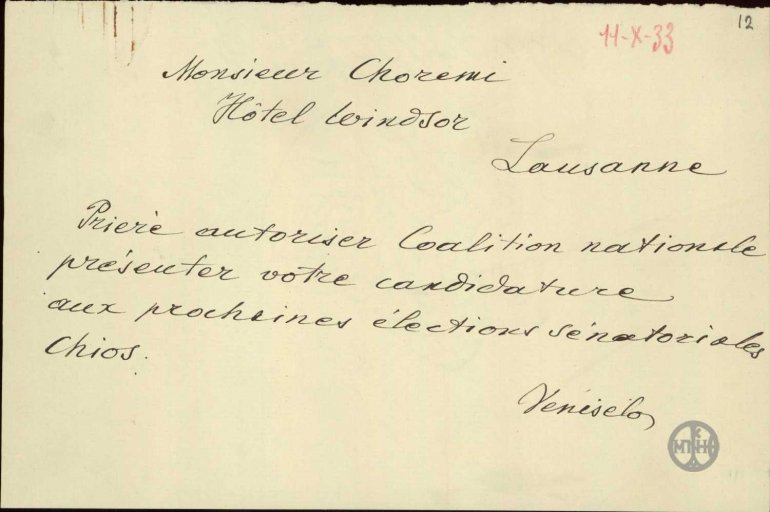 12
11-X-33
Monsieur Choremi
Hôtel Windsor
Lausanne
Prière autoriser Coalition nationale
présenter votre candidature
aux prochaines élections sénatoriales
Chios.
Vénisélos